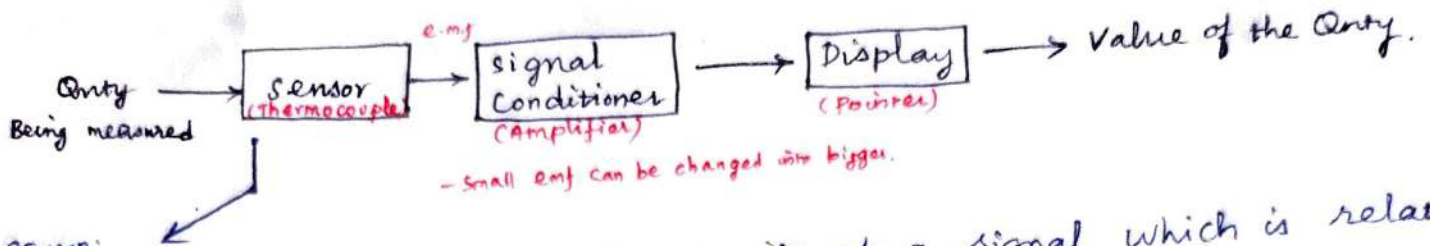 e.m.f
Qnty
Being measured
Sensor
(Thermocouple)
Signal
Conditioner
(Amplifier)
Display
(Pointer)
Value of the Qnty.
- Small emf can be changed into bigger.
signal which is relat